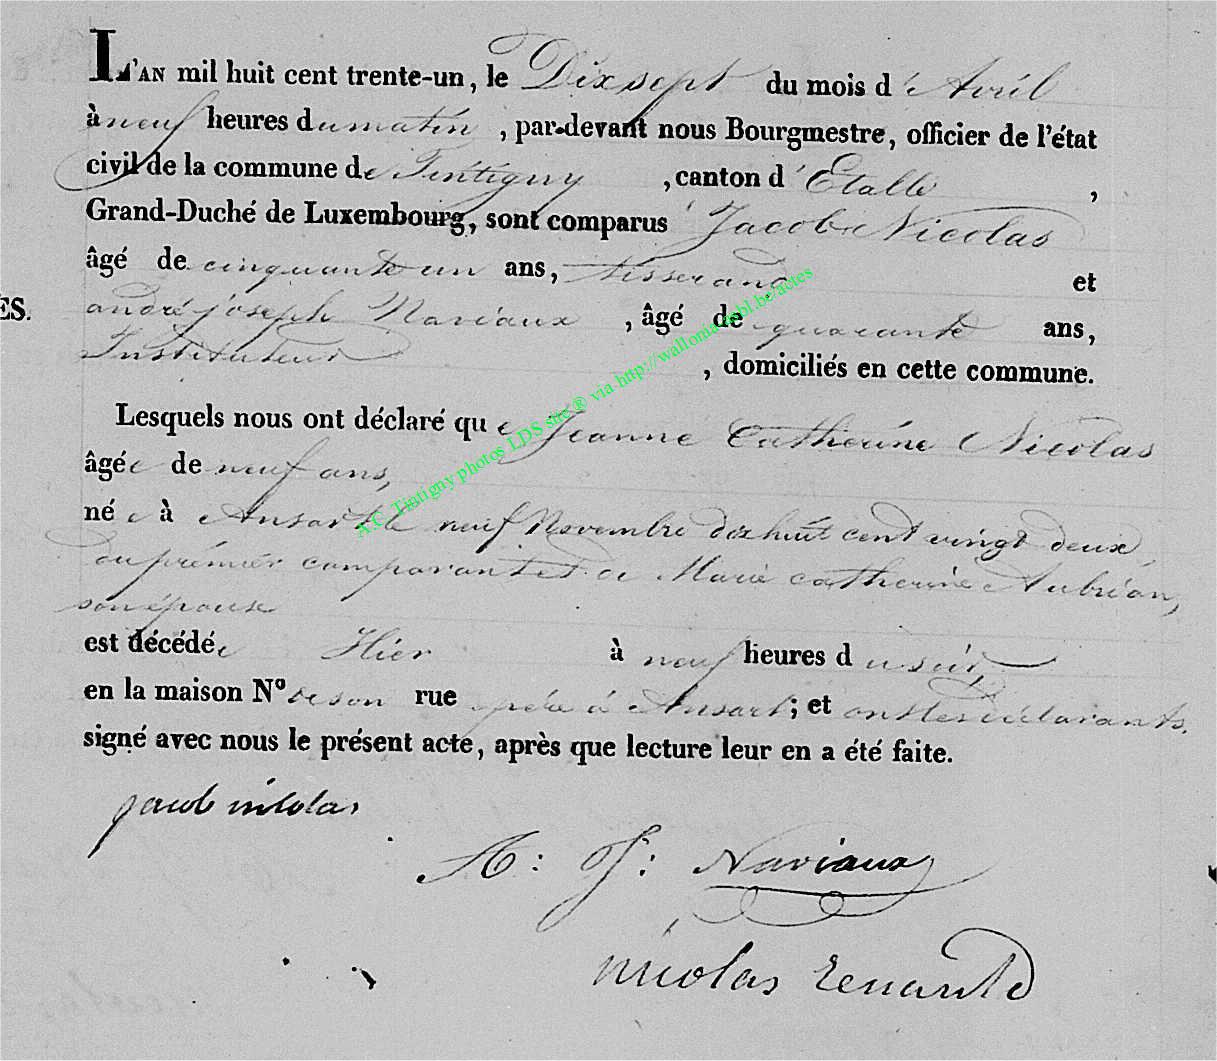 L'AN mil huit cent trente-un, le Dix sept du mois d'Avril
à neuf heures du matin, par-devant nous Bourgmestre, officier de l'état
civil de la commune de Tintigny, canton d'Etalle,
Grand-Duché de Luxembourg, sont comparus Jacob Nicolas
âgé de cinquante un ans, tisserand et
ÉS.
andré joseph Naviaux, âgé de quarante ans,
Instituteur, domiciliés en cette commune.
Lesquels nous ont déclaré que Jeanne Catherine Nicolas
âgée de neuf ans,
née à Ansart le neuf Novembre dix huit cent vingt deux,
du premier comparant et de Marie catherine Aubrion,
son épouse
est décédée Hier à neuf heures du soir,
en la maison N° de son rue père à Ansart; et ont les déclarants
signé avec nous le présent acte, après que lecture leur en a été faite.
jacob nicolas
A: J: Naviaux
nicolas renauld
A.C. Tintigny photos LDS site ® via http://wallonia.mbl.be/actes